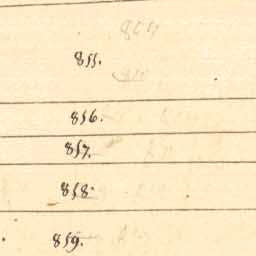 855.
856.
857.
858.
859.